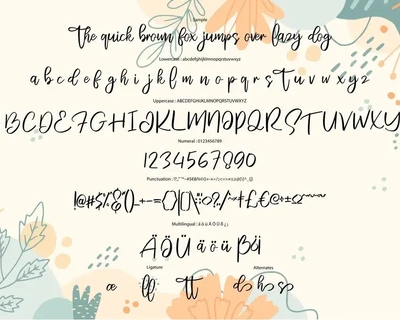 Sample
The quick brown fox jumps over lazy dog
Lowercase : abcdefghijklmnopqrstuvwxyz
a b c d e f g h i j k l m n o p q r s t u v w x y z
Uppercase : ABCDEFGHIJKLMNOPQRSTUVWXYZ
BCDEFGHIJKLMNOPQRSTUVWXY
Numeral : 0123456789
1234567890
Punctuation :
!@#$%^&*()_+-={}|[]\:;<>?,./~£€@÷±Ω
Multilingual : ä ö ü Ä Ö Ü ß ¡ ¿
Ä Ö Ü ä ö ü ß
Ligature
Alternates
æ
tt